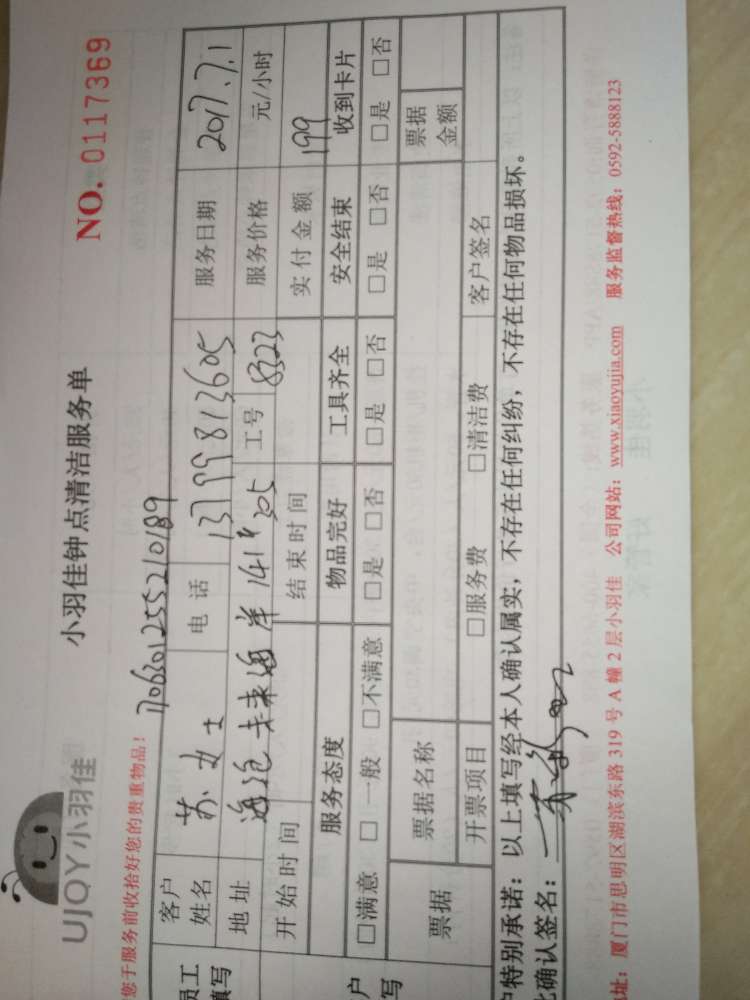 UJOY小羽佳
小羽佳钟点清洁服务单
NO. 0117369
您于服务前收拾好您的贵重物品!
1706301255210189
员工
填写
客户姓名 苏女士 电话 13799813605 服务日期 2017.7.1
地址 海沧未来海岸141# 305 工号 8323 服务价格 元/小时
开始时间 结束时间 实付金额 199
户
写
服务态度 物品完好 工具齐全 安全结束 收到卡片
□满意 □一般 □不满意 □是 □否 □是 □否 □是 □否 □是 □否
票据 票据名称 票据金额
开票项目 □服务费 □清洁费 客户签名
户特别承诺:以上填写经本人确认属实,不存在任何纠纷,不存在任何物品损坏。
此确认签名:
址:厦门市思明区湖滨东路319号A幢2层小羽佳 公司网站:www.xiaoyujia.com 服务监督热线:0592-5888123